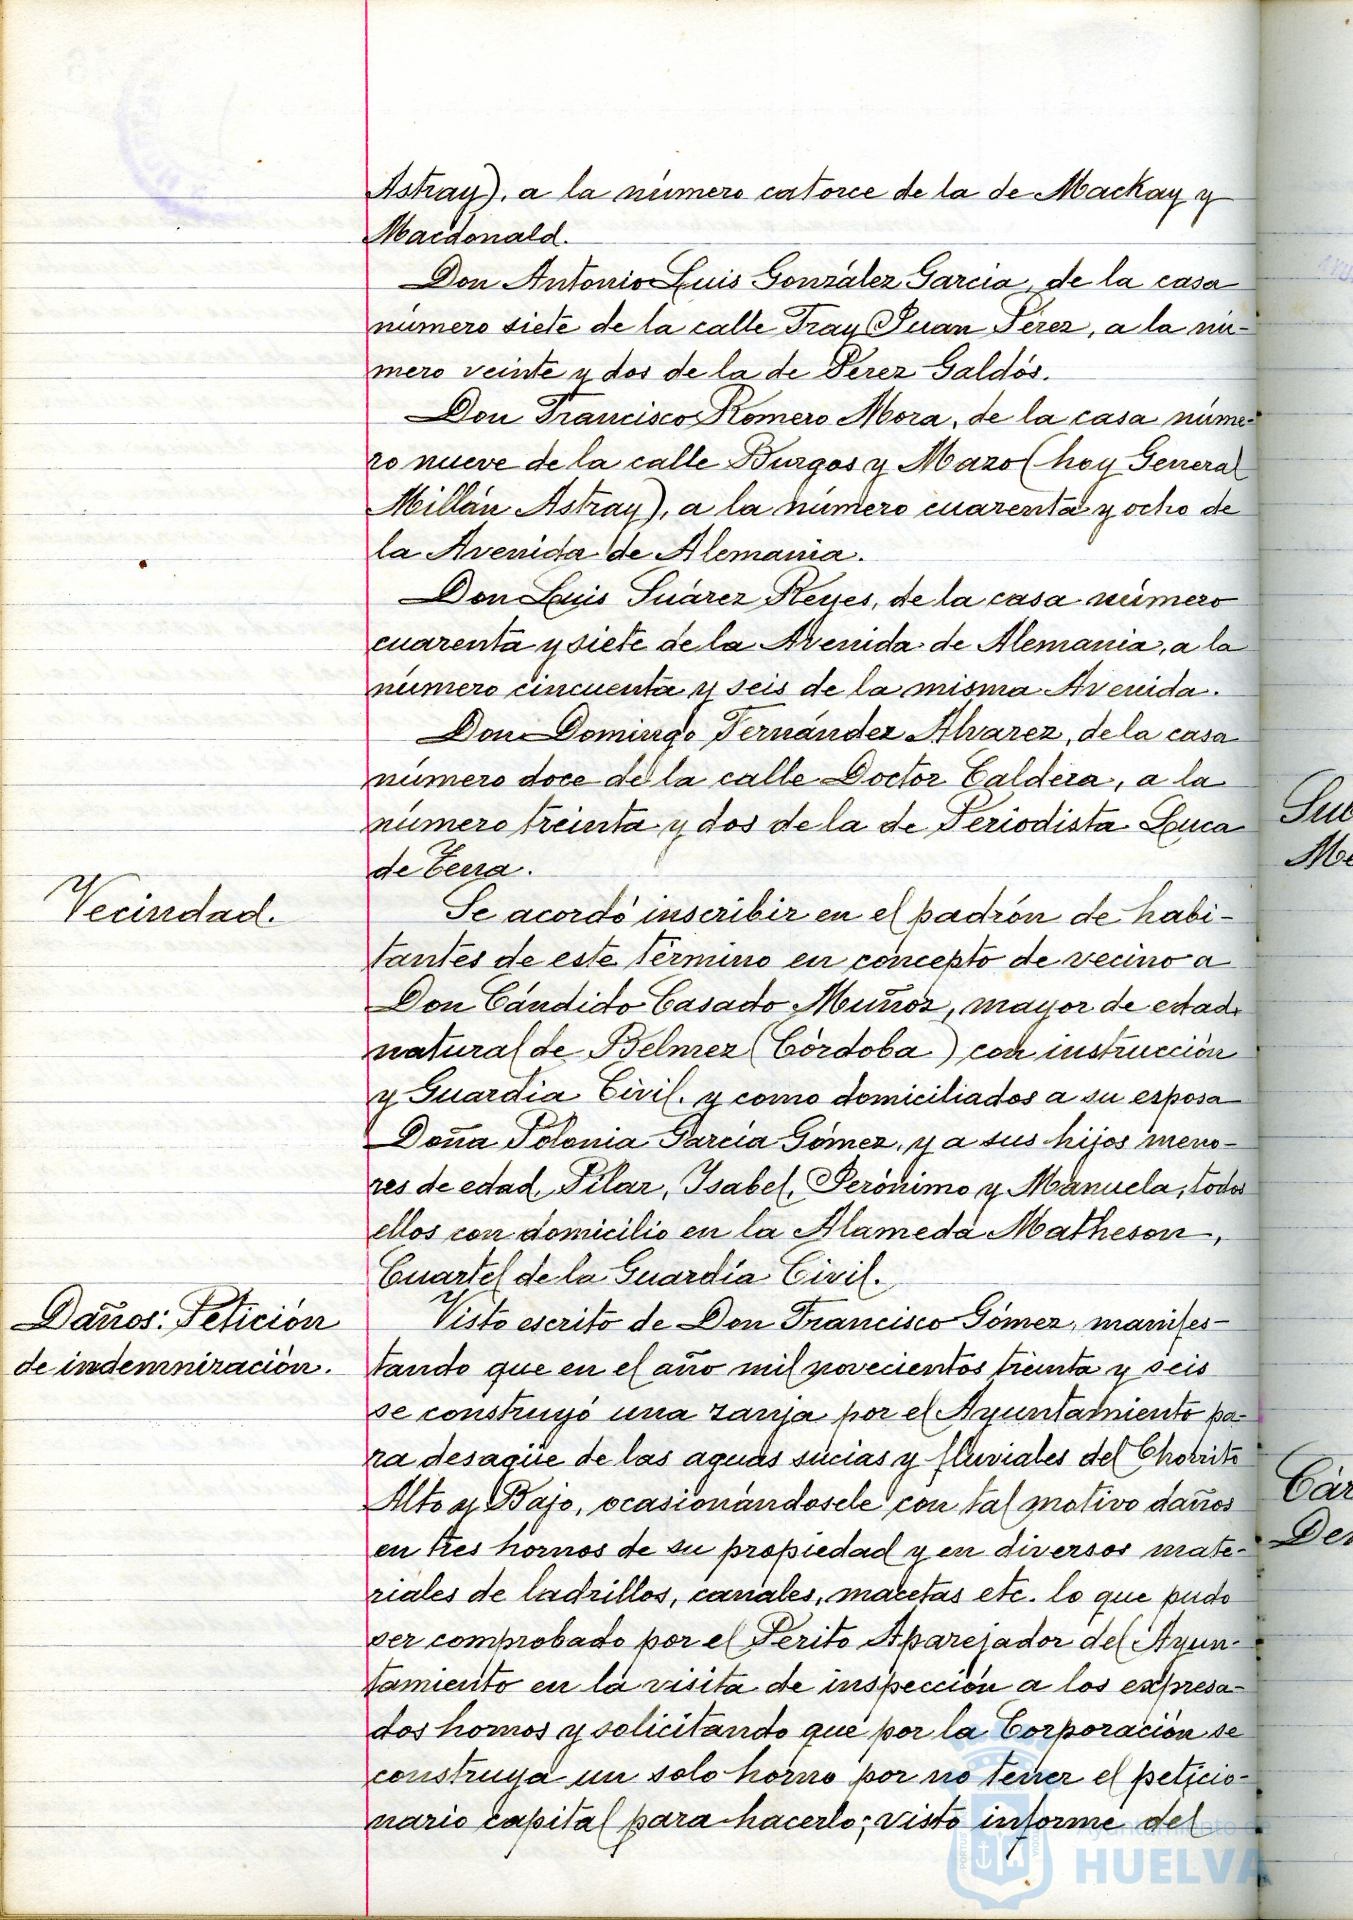 Astray), a la número catorce de la de Mackay y
Macdonald.
Don Antonio Luis González García, de la casa
número siete de la calle Fray Juan Pérez, a la nú-
mero veinte y dos de la de Pérez Galdós.
Don Francisco Romero Mora, de la casa núme-
ro nueve de la calle Burgos y Mazo (hoy General
Millán Astray), a la número cuarenta y ocho de
la Avenida de Alemania.
Don Luis Suárez Reyes, de la casa número
cuarenta y siete de la Avenida de Alemania, a la
número cincuenta y seis de la misma Avenida.
Don Domingo Fernández Alvarez, de la casa
número doce de la calle Doctor Caldera, a la
número treinta y dos de la de Periodista Luca
de Tena.
Vecindad.
Se acordó inscribir en el padrón de habi-
tantes de este término en concepto de vecino a
Don Cándido Casado Muñoz, mayor de edad,
natural de Belmez (Córdoba) con instrucción
y Guardia Civil. y como domiciliados a su esposa
Doña Polonia García Gómez, y a sus hijos meno-
res de edad, Pilar, Isabel, Jerónimo y Manuela, todos
ellos con domicilio en la Alameda Matheson,
Cuartel de la Guardia Civil.
Daños: Petición
de indemnización.
Visto escrito de Don Francisco Gómez, manifes-
tando que en el año mil novecientos treinta y seis
se construyó una zanja por el Ayuntamiento pa-
ra desagüe de las aguas sucias y fluviales del Chorrito
Alto y Bajo, ocasionándosele con tal motivo daños
en tres hornos de su propiedad y en diversos mate-
riales de ladrillos, canales, macetas etc. lo que pudo
ser comprobado por el Perito Aparejador del Ayun-
tamiento en la visita de inspección a los expresa-
dos hornos y solicitando que por la Corporación se
construya un solo horno por no tener el peticio-
nario capital para hacerlo; visto informe del
Ayuntamiento de
HUELVA